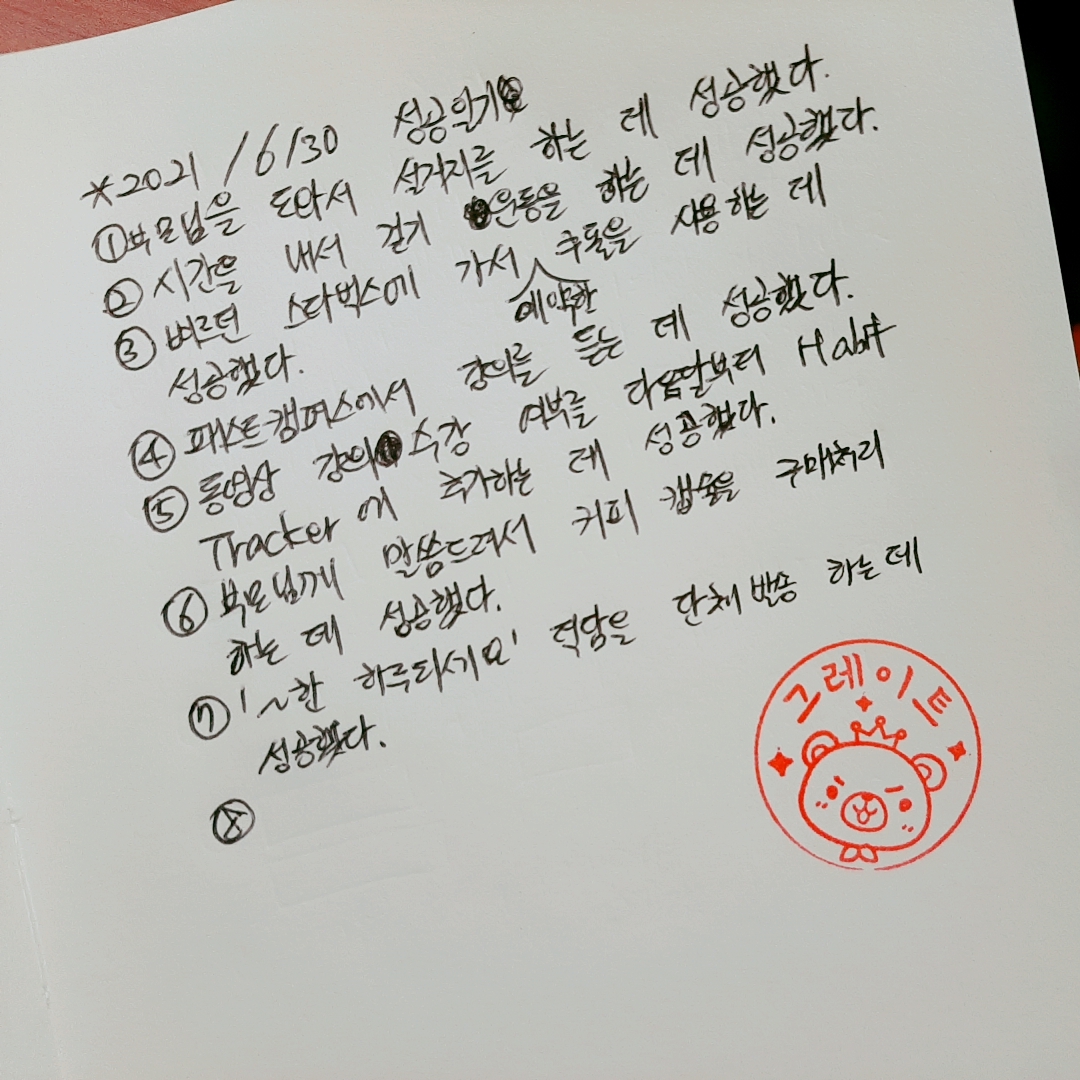 *2021/6/30 성공일기
①부모님을 도와서 설거지를 하는 데 성공했다.
② 시간을 내서 걷기 운동을 하는 데 성공했다.
③ 벼르던 스타벅스에 가서 예약한 쿠폰을 사용하는 데
성공했다.
④ 패스트캠퍼스에서 강의를 듣는 데 성공했다.
⑤ 동영상 강의 수강 여부를 다음달부터 Habit
Tracker에 추가하는 데 성공했다.
⑥ 부모님께 말씀드려서 커피 캡슐을 구매처리
하는 데 성공했다.
⑦ '~한 하루되세요' 덕담을 단체발송 하는데
성공했다.
⑧
그레이트